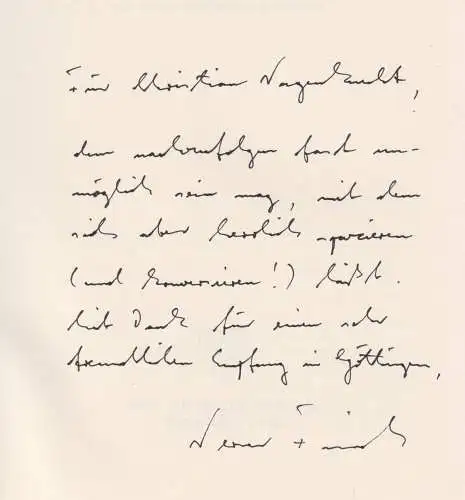 Für Christian Wagenknecht,
dem nachzufolgen fast un-
möglich sein mag, mit dem
sich aber herrlich spazieren
(und konversieren!) läßt.
Mit Dank für einen sehr
freundlichen Empfang in Göttingen,
Werner Frisch